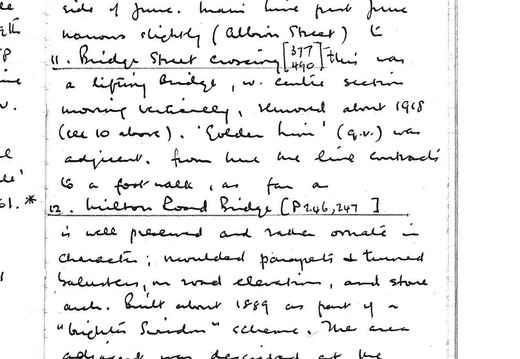 side of June. Main line past June
narrows slightly (Albion Street) to
11. Bridge Street crossing [377 490] this was
a lifting Bridge, w. centre section
moving vertically, removed about 1918
(see 10 above). 'Golden Lion' (q.v.) was
adjacent. From here the line contracts
to a footwalk, as far as
12. Milton Road Bridge [P246, 247]
is well preserved and rather ornate in
character; moulded parapets & turned
balusters, on road elevation, and stone
arch. Built about 1889 as part of a
"brighter Swindon" scheme. The area
adjacent was described at the